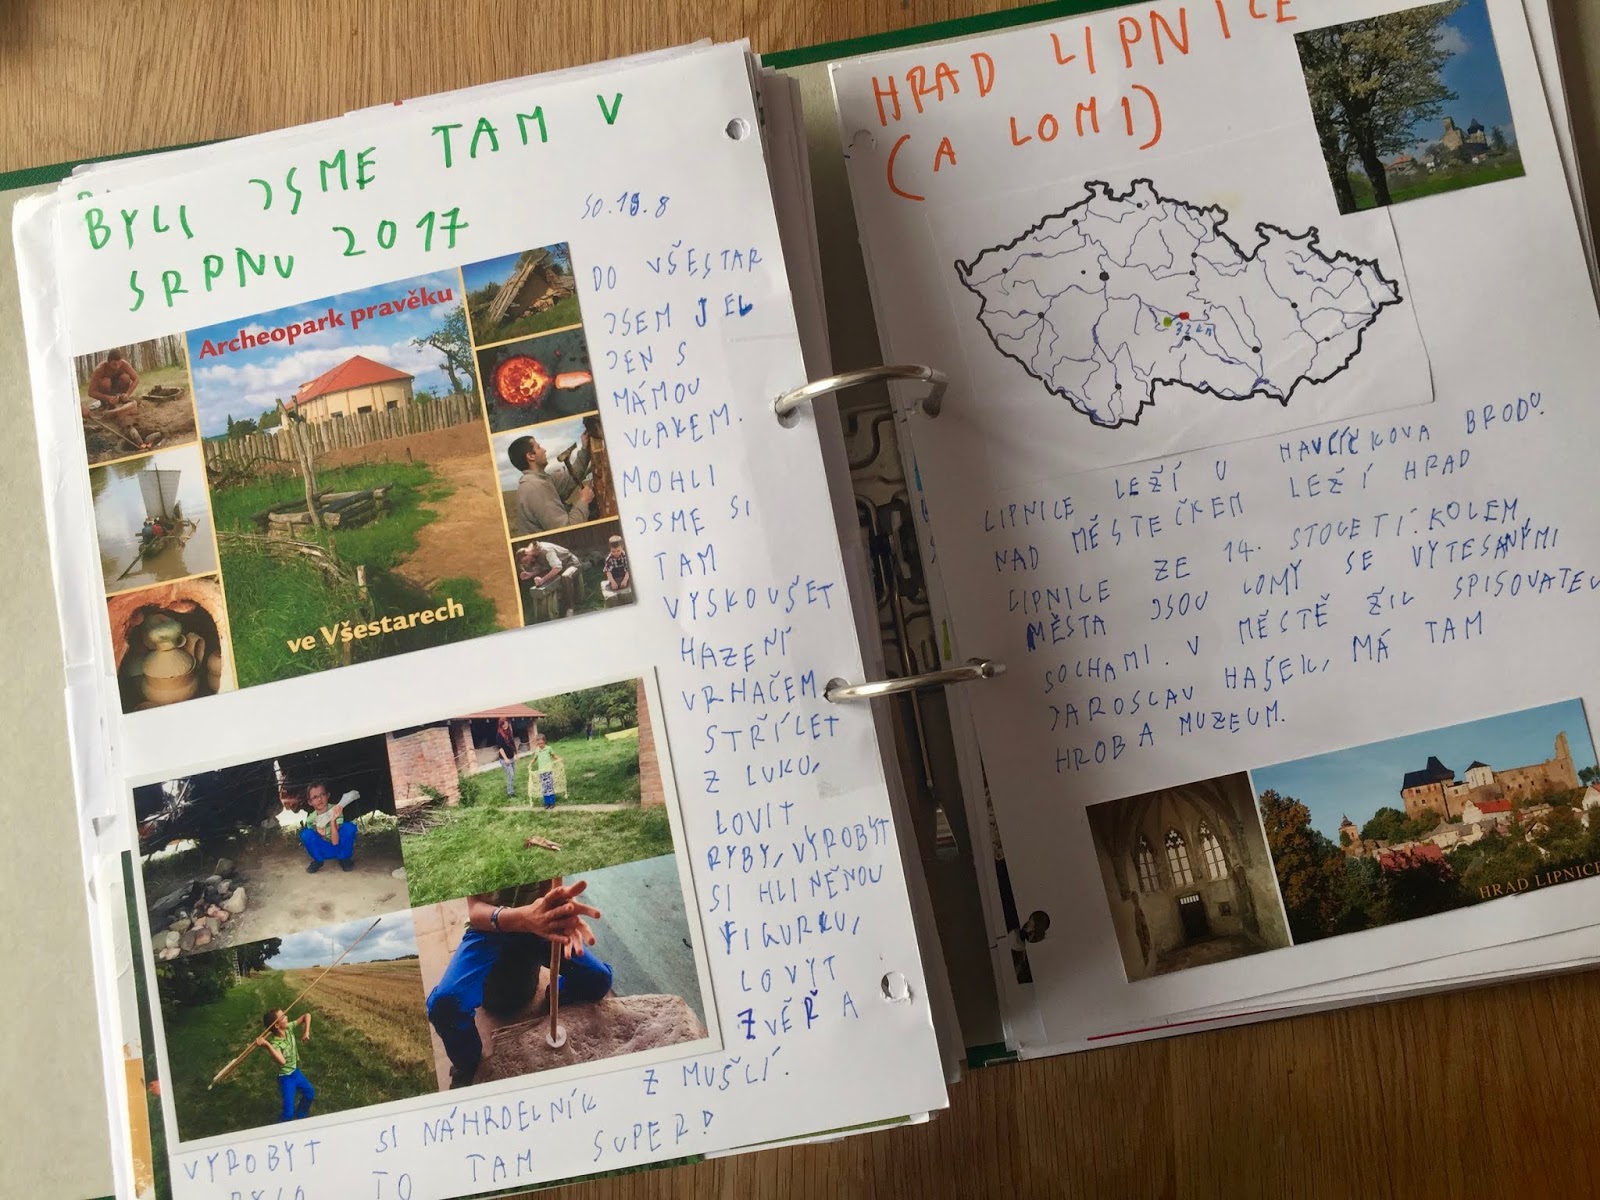 BYLI JSME TAM V
SRPNU 2017
SO. 19.8
Archeopark pravěku
ve Všestarech
DO VŠESTAR
JSEM JEL
JEN S
MÁMOU
VLAKEM.
MOHLI
JSME SI
TAM
VYSKOUŠET
HAZENÍ
VRHAČEM,
STŘÍLET
Z LUKU,
LOVIT
RYBY, VYROBYT
SI HLINĚNOU
FIGURKU,
LOVYT
ZVĚŘ A
VYROBYT SI NÁHRDELNÍK Z MUŠLÍ.
BYLO TO TAM SUPER!
HRAD LIPNICE
(A LOMI)
32 km
LIPNICE LEŽÍ U HAVLÍČKOVA BRODU.
NAD MĚSTEČKEM LEŽÍ HRAD
LIPNICE ZE 14. STOLETÍ. KOLEM
MĚSTA JSOU LOMY SE VYTESANÝMI
SOCHAMI. V MĚSTĚ ŽIL SPISOVATEL
JAROSLAV HAŠEK, MÁ TAM
HROB A MUZEUM.
HRAD LIPNICE